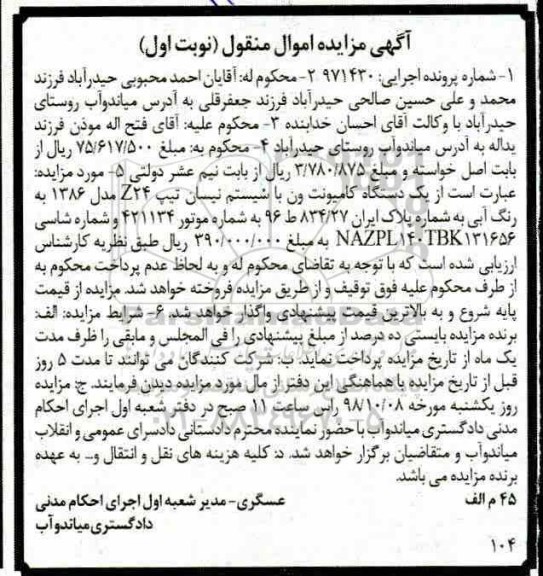 آگهی مزایده اموال منقول (نوبت اول)
۱- شماره پرونده اجرایی: ۹۷۱۴۳۰ ۲- محکوم له: آقایان احمد محبوبی حیدرآباد فرزند
محمد و علی حسین صالحی حیدرآباد فرزند جعفرقلی به آدرس میاندوآب روستای
حیدرآباد با وکالت آقای احسان خدابنده ۳- محکوم علیه: آقای فتح اله موذن فرزند
یداله به آدرس میاندوآب روستای حیدرآباد ۴- محکوم به: مبلغ ۷۵/۶۱۷/۵۰۰ ریال از
بابت اصل خواسته و مبلغ ۳/۷۸۰/۸۷۵ ریال از بابت نیم عشر دولتی ۵- مورد مزایده:
عبارت است از یک دستگاه کامیونت ون با سیستم نیسان تیپ Z۲۴ مدل ۱۳۸۶ به
رنگ آبی به شماره پلاک ایران ۸۳۴/۲۷ ط ۹۶ به شماره موتور ۴۲۱۱۳۴ و شماره شاسی
NAZPL۱۴۰TBK۱۳۱۶۵۶ به مبلغ ۳۹۰/۰۰۰/۰۰۰ ریال طبق نظریه کارشناس
ارزیابی شده است که با توجه به تقاضای محکوم له و به لحاظ عدم پرداخت محکوم به
از طرف محکوم علیه فوق توقیف و از طریق مزایده فروخته خواهد شد. مزایده از قیمت
پایه شروع و به بالاترین قیمت پیشنهادی واگذار خواهد شد. ۶- شرایط مزایده: الف:
برنده مزایده بایستی ده درصد از مبلغ پیشنهادی را فی المجلس و مابقی را ظرف مدت
یک ماه از تاریخ مزایده پرداخت نماید. ب: شرکت کنندگان می توانند تا مدت ۵ روز
قبل از تاریخ مزایده با هماهنگی این دفتر از مال مورد مزایده دیدن فرمایند. ج: مزایده
روز یکشنبه مورخه ۹۸/۱۰/۰۸ راس ساعت ۱۱ صبح در دفتر شعبه اول اجرای احکام
مدنی دادگستری میاندوآب با حضور نماینده محترم دادستانی دادسرای عمومی و انقلاب
میاندوآب و متقاضیان برگزار خواهد شد. د: کلیه هزینه های نقل و انتقال و... به عهده
برنده مزایده می باشد.
۴۵ م الف عسگری- مدیر شعبه اول اجرای احکام مدنی
دادگستری میاندوآب
۱۰۴